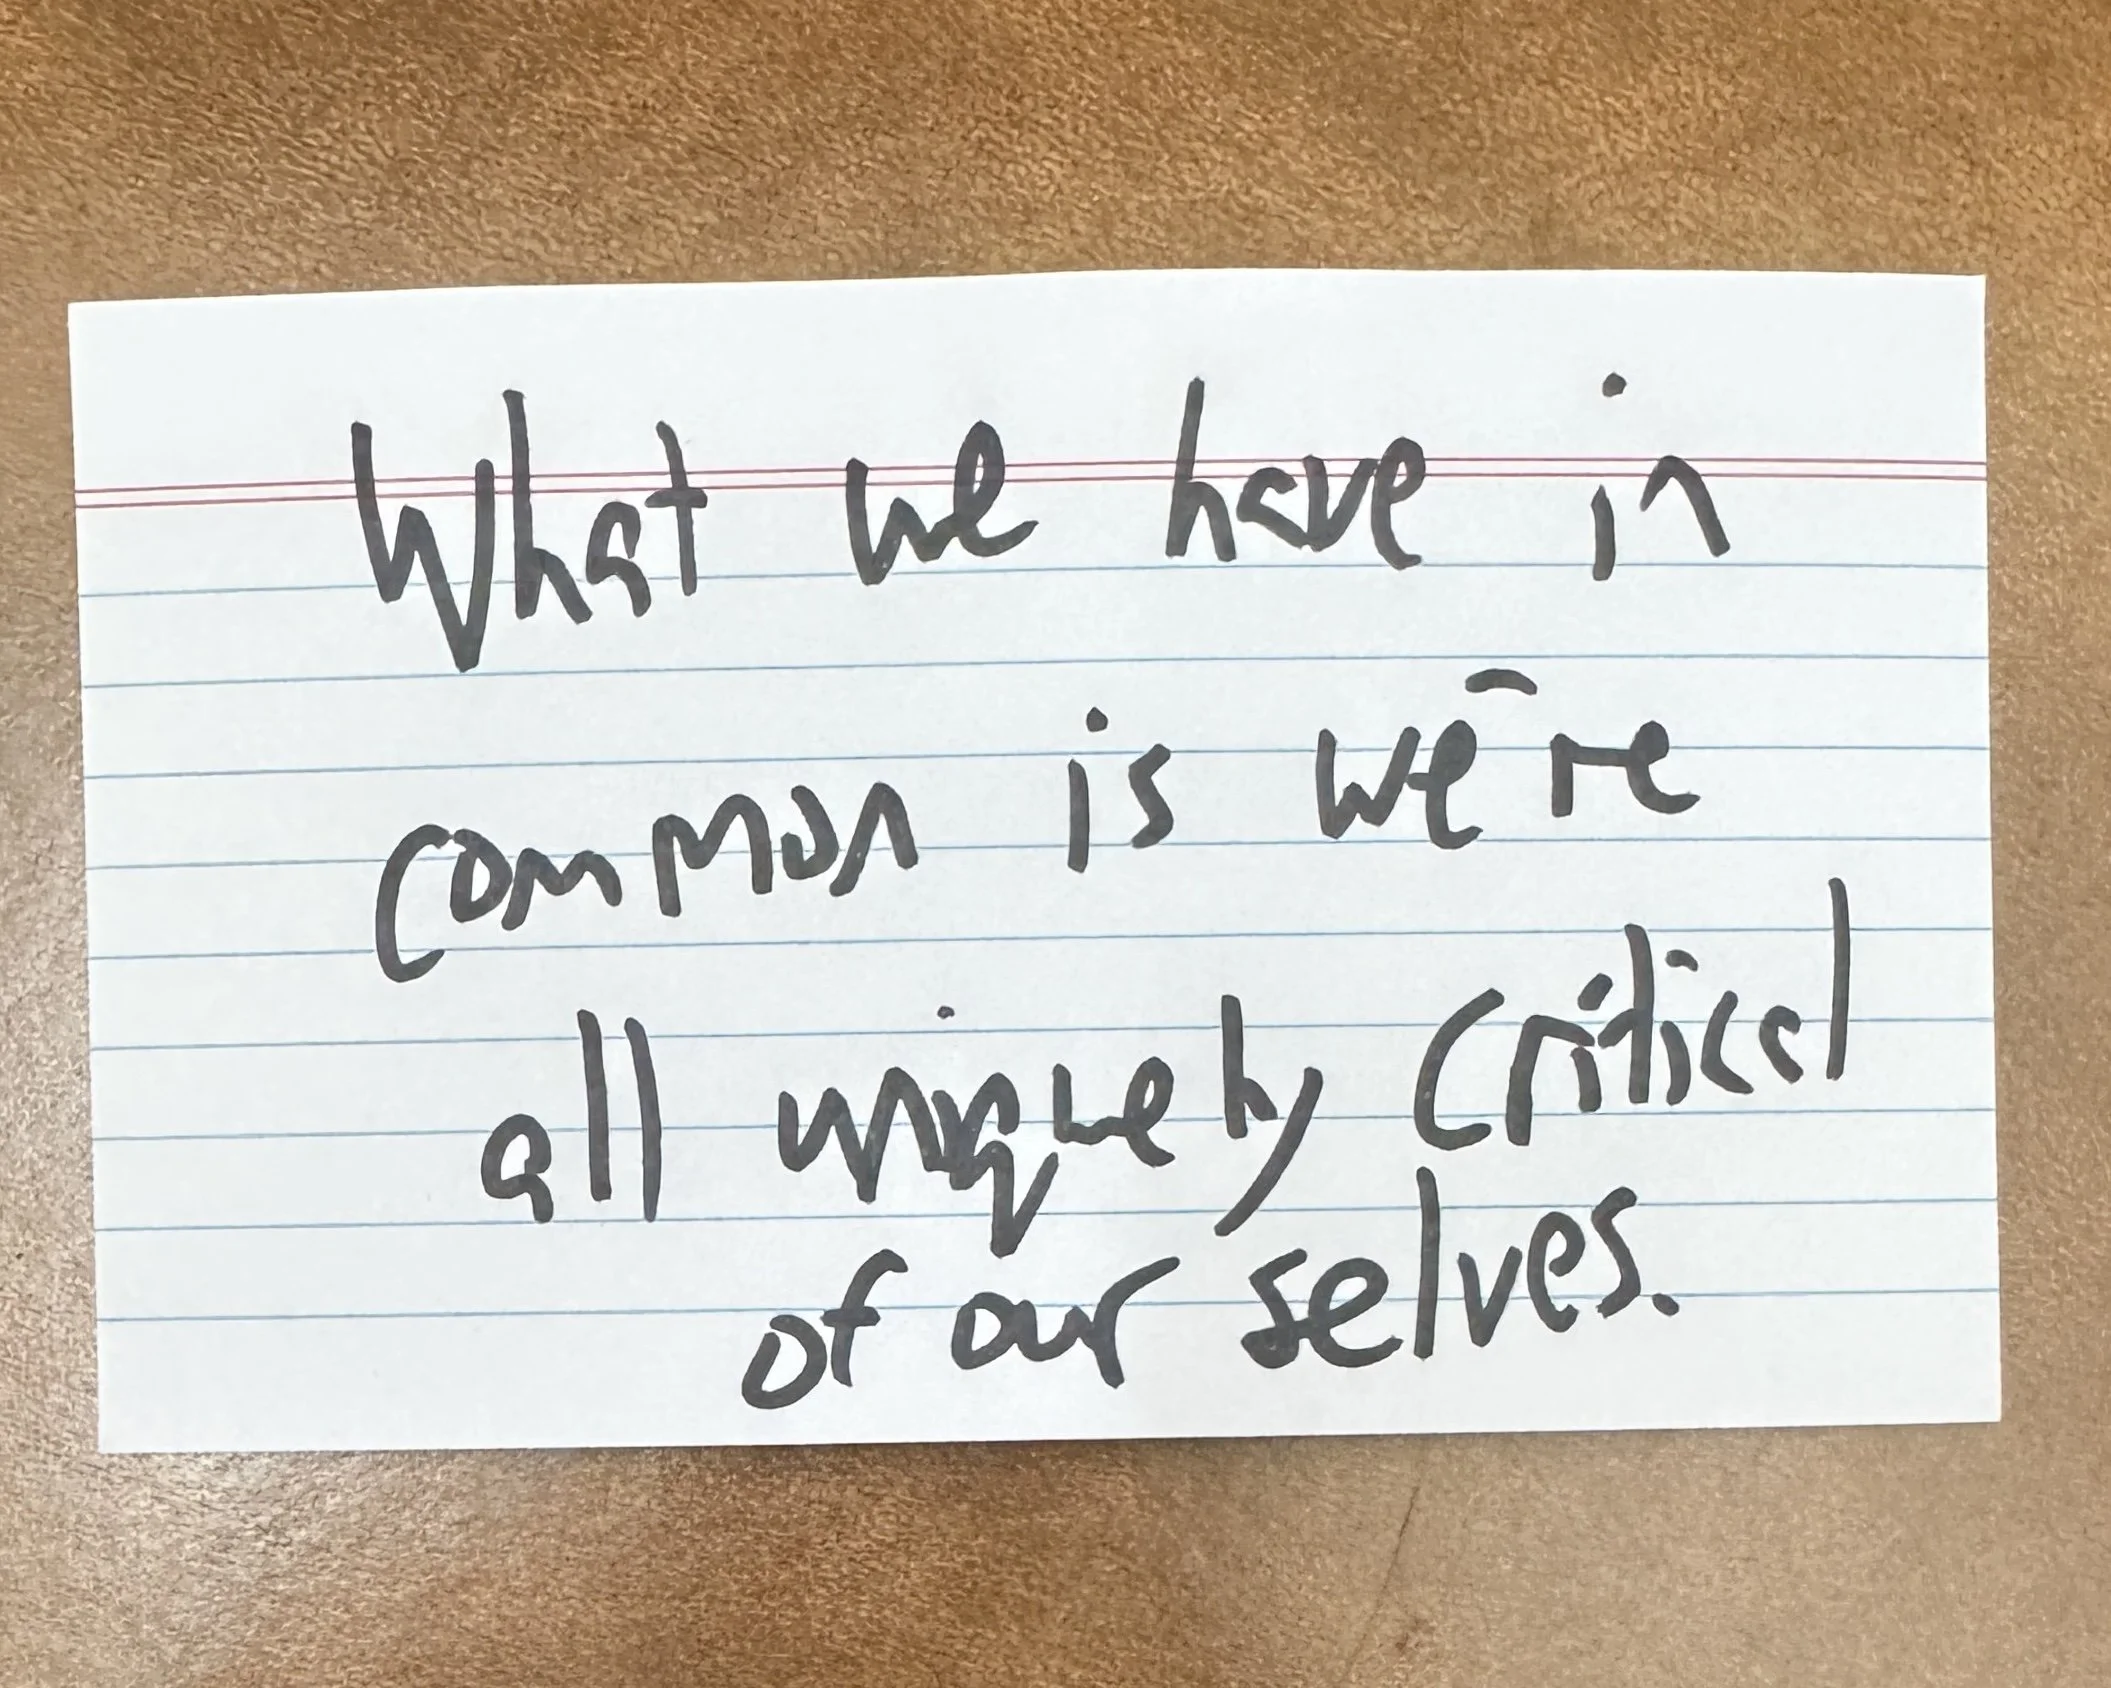 What we have in
common is we're
all uniquely critical
of our selves.